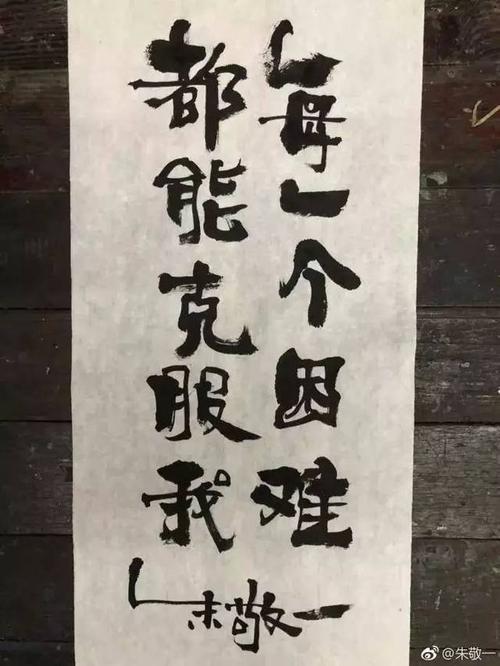 每一个困难
都能克服我
朱敬一
@朱敬一